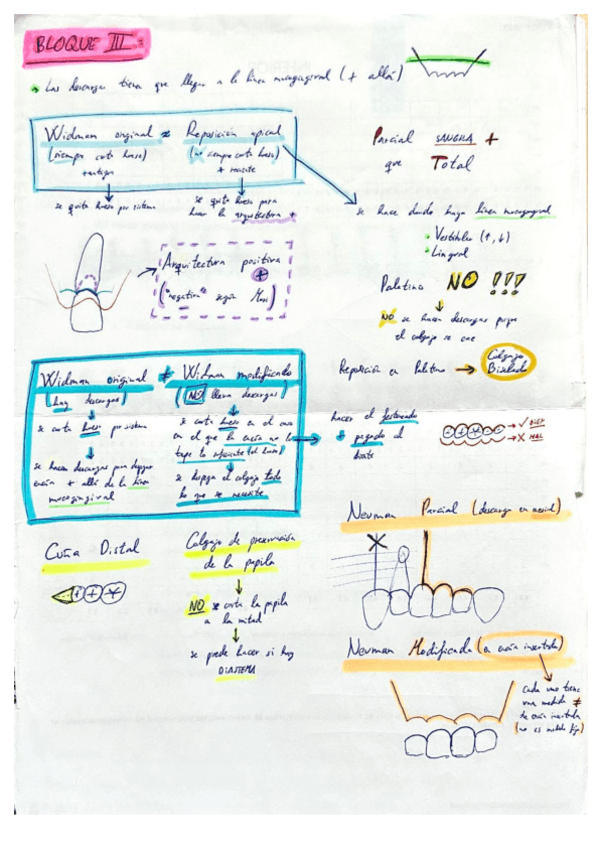 BLOQUE III
Las descargas tienen que llegar a la línea mucogingival (+ allá)
Widman original ≈ Reposición apical
(siempre corta hueso) (no siempre corta hueso)
+ antiguo + reciente
se quita hueso por sistema
se quita hueso para
hacer la arquitectura +
Parcial SANGRA +
que Total
se hace donde haya línea mucogingival
Vestibular (↑, ↓)
Lingual
Palatino NO !!!
NO se hacen descargas porque
el colgajo se cae
Reposición en Palatino → Colgajo
Biselado
Arquitectura positiva
+
("negativa" según
Widman original ≠ Widman modificado
(hay descargas) (NO lleva descargas)
se corta hueso por sistema
se hacen descargas para despegar
encía + allá de la línea
mucogingival
se corta hueso en el caso
en el que la encía no
tape lo suficiente (el hueso)
se despega el colgajo todo
lo que se necesite
hacer el festoneado
+ pegado al
diente
✓ BIEN
X MAL
Cuña Distal
Colgajo de preservación
de la papila
NO se corta la papila
a la mitad
se puede hacer si hay
DIASTEMA
Neuman Parcial (descarga en mesial)
Neuman Modificado (en encía insertada)
Cada uno tiene
una medida ≠
de encía insertada
(no es medida fija)